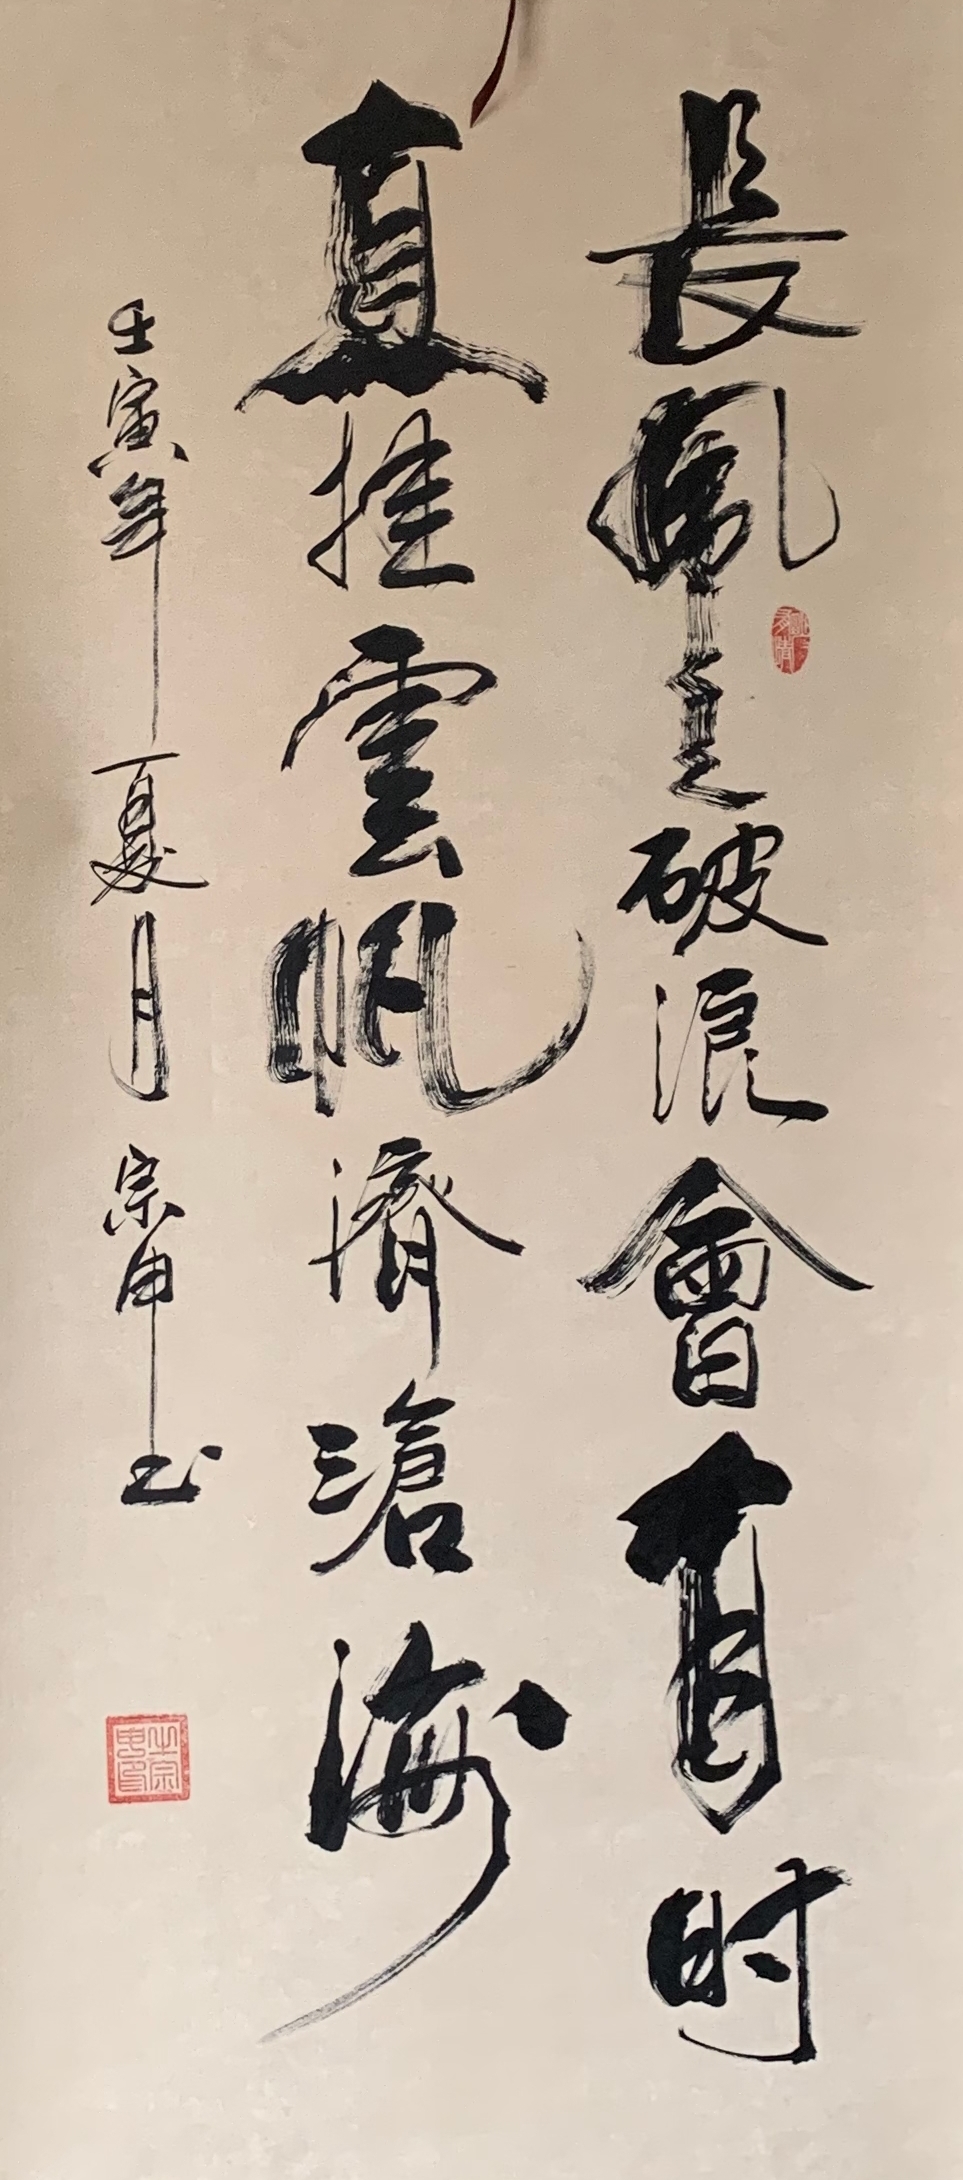 長風破浪會有時
直挂雲帆濟滄海
壬寅年夏月宗申书